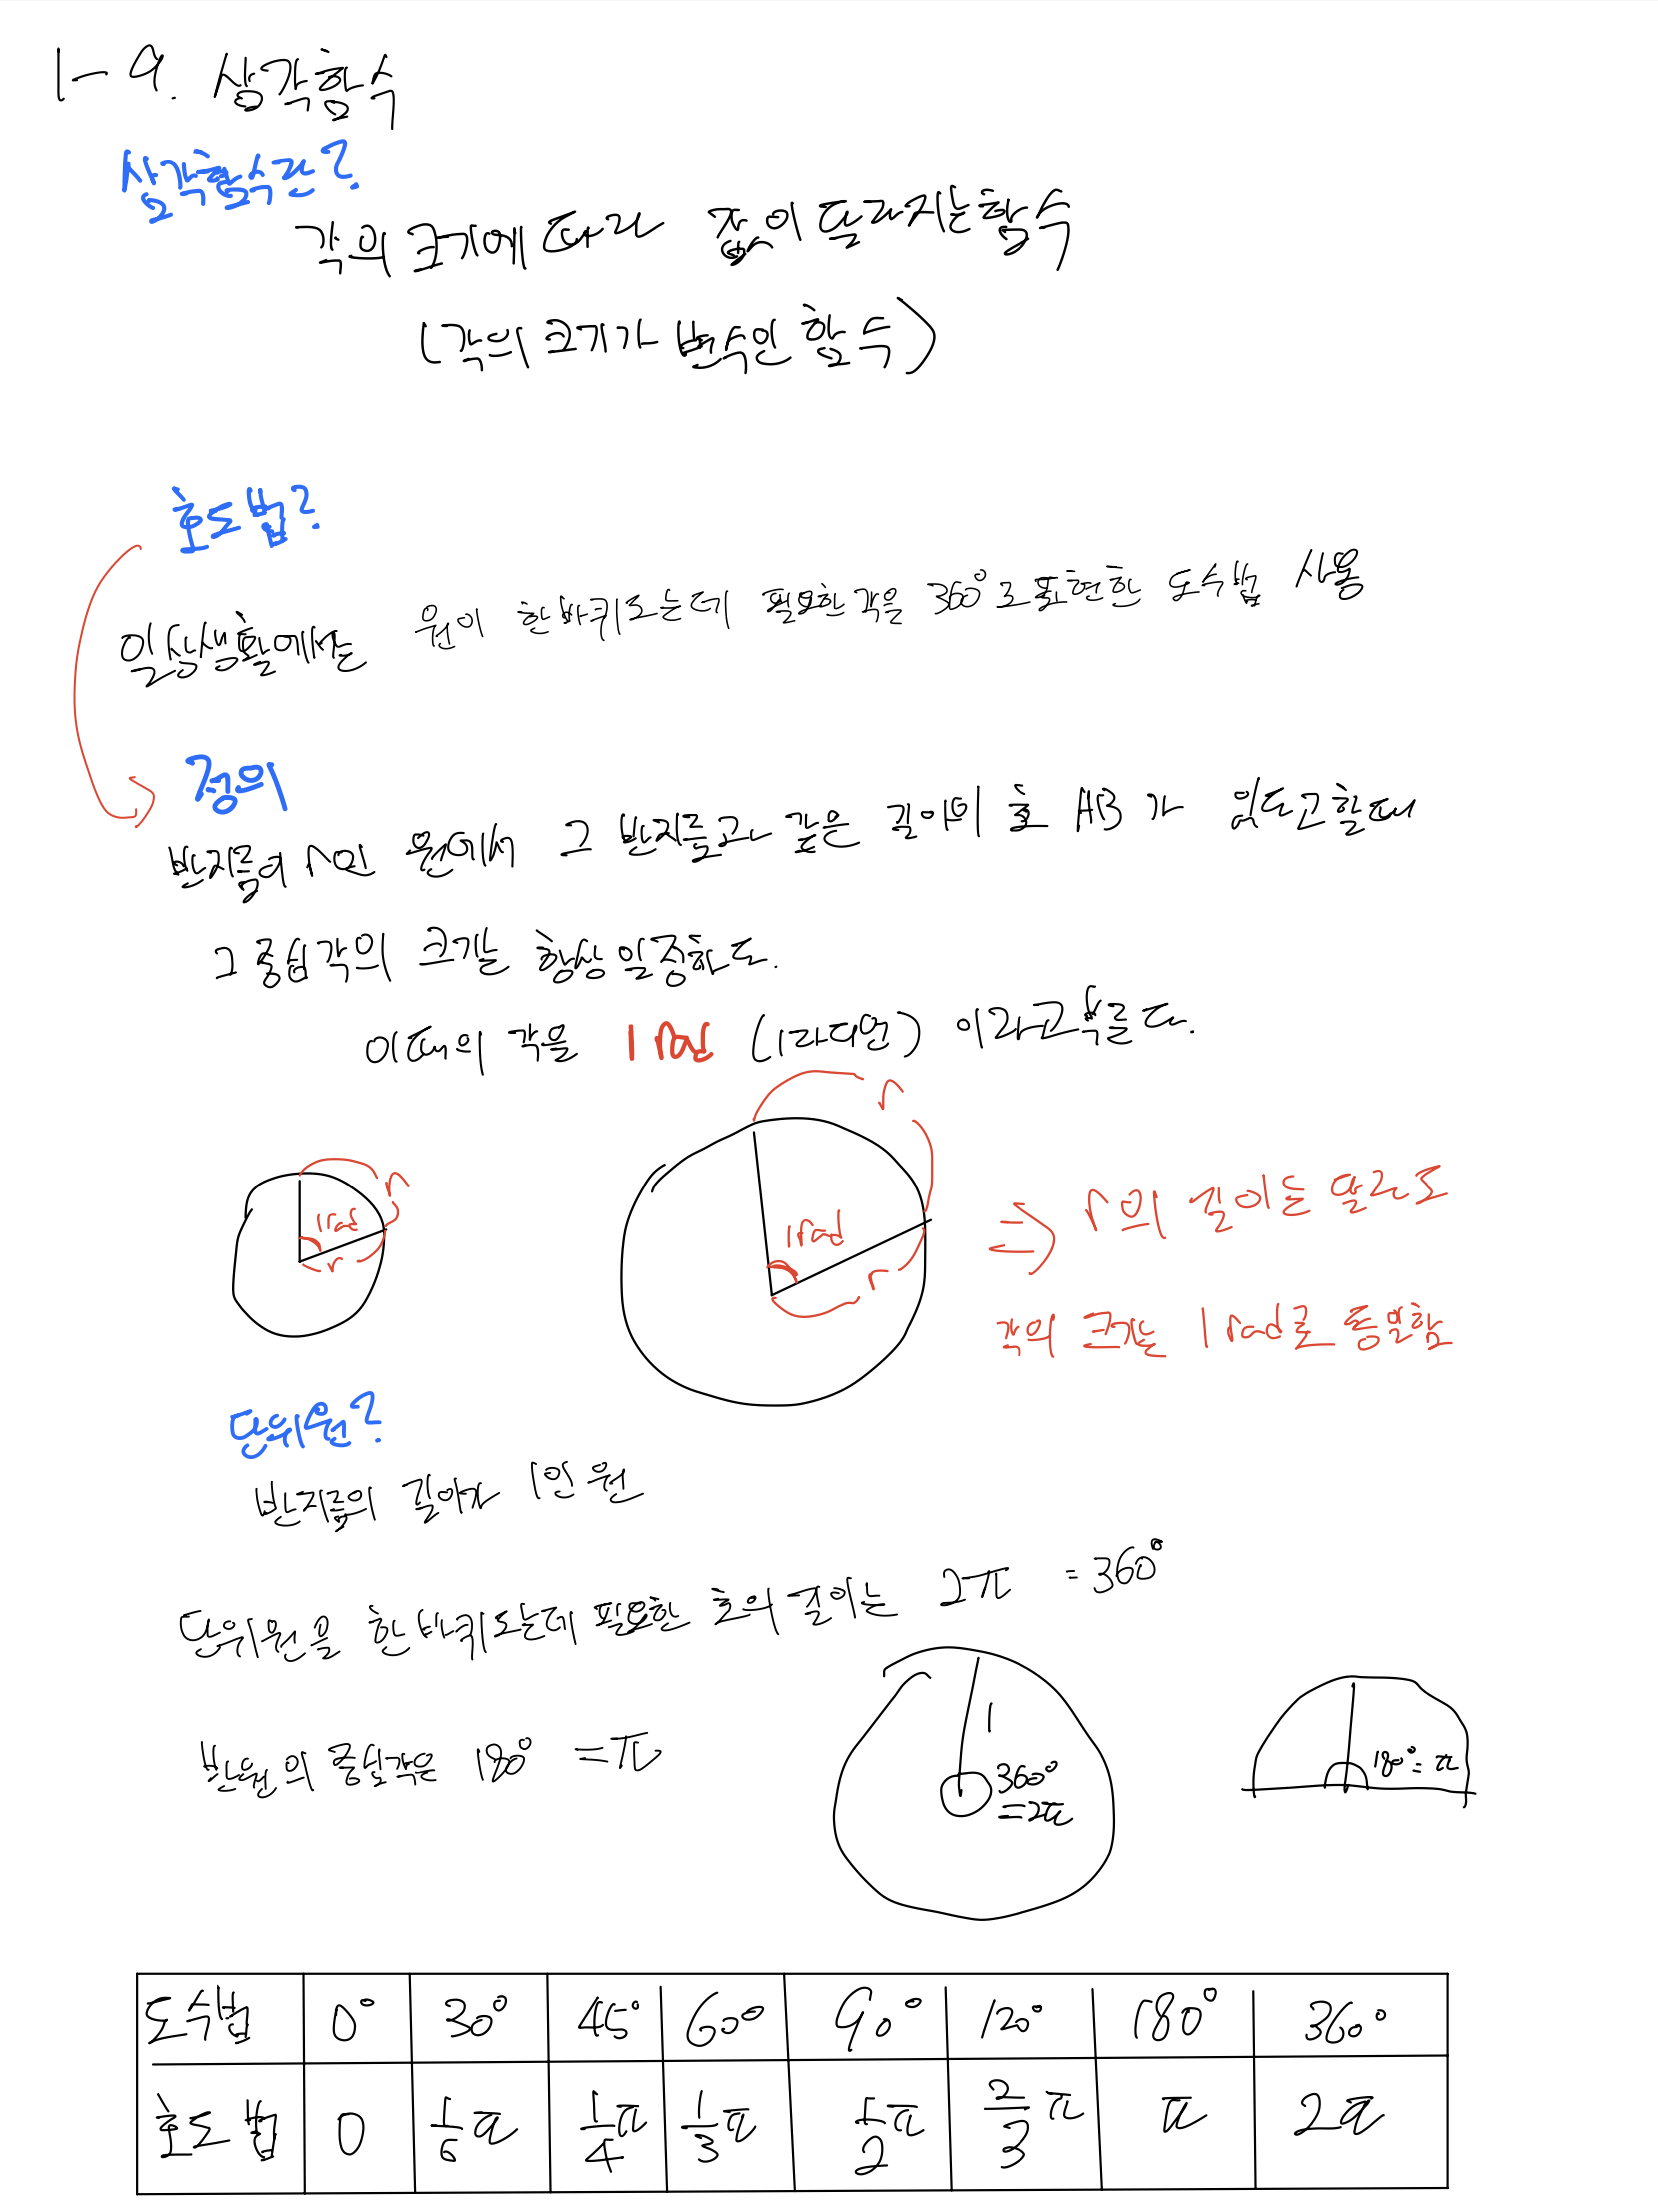 1-9. 삼각함수
삼각함수란?
각의 크기에 따라 값이 달라지는 함수
(각의 크기가 변수인 함수)
호도법?
일상생활에서는 원이 한바퀴 도는데 필요한 각을 360°로 표현한 도수법 사용
정의
반지름이 r인 원에서 그 반지름과 같은 길이의 호 AB가 있다고할때
그 중심각의 크기는 항상 일정하다.
이때의 각을 1 rad (1라디안) 이라고 부른다.
r
r
1rad
r
1rad
r
⇒ r의 길이는 달라도
각의 크기는 1rad로 동일함
단위원?
반지름의 길이가 1인 원
단위원을 한바퀴 도는데 필요한 호의 길이는 2π = 360°
반원의 중심각은 180° = π
1
360°
=2π
180°=π
도수법 0° 30° 45° 60° 90° 120° 180° 360°
호도법 0 1/6π 1/4π 1/3π 1/2π 2/3π π 2π